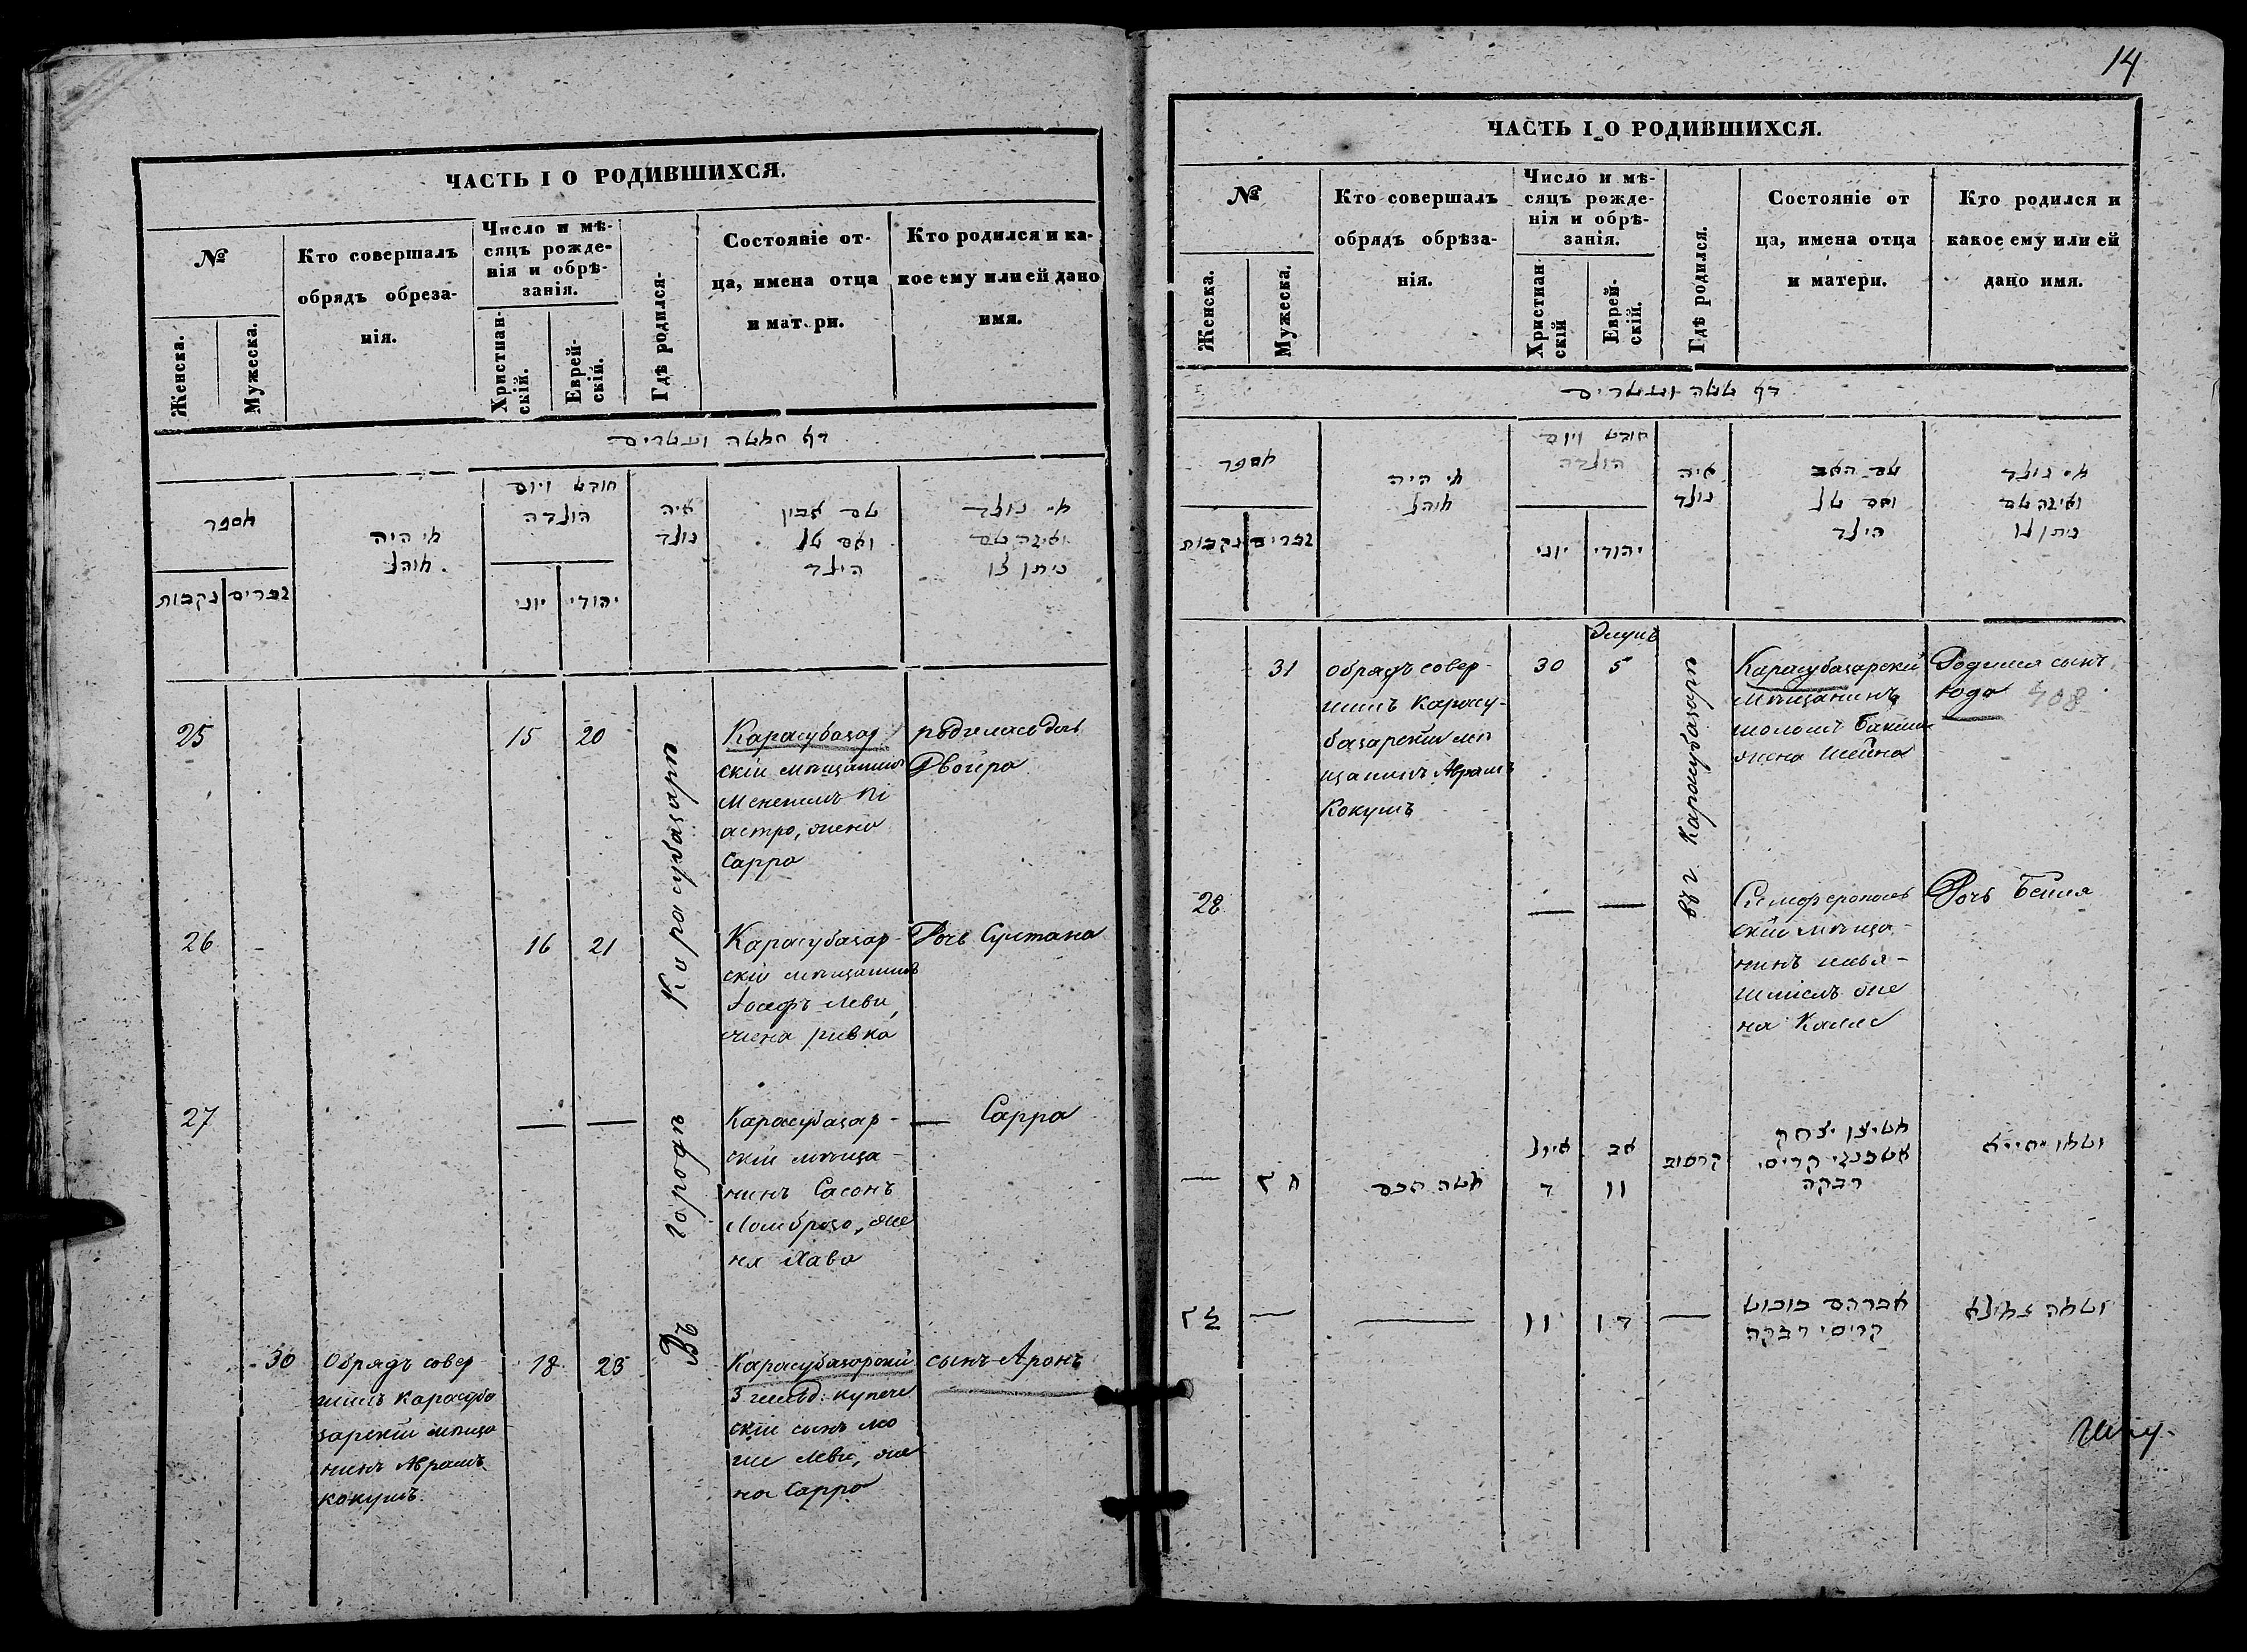 ЧАСТЬ I О РОДИВШИХСЯ.
№
Женска.
Мужеска.
Кто совершалъ
обрядъ обреза-
нія.
Число и мѣ-
сяцъ рожде-
нія и обрѣ-
занія.
Христиан-
скій.
Еврей-
скій.
Гдѣ родился-
Состояніе от-
ца, имена отца
и мат ри.
Кто родился и ка-
кое ему или ей дано
имя.
דף חמשה ועשרים
מספר
נקבות
זכרים
מי היה
מוהל
חודש ויום
הולדה
יוני
יהודי
איה
נולד
שם אביו
ואם של
הילד
מי נולד
ואיזה שם
ניתן לו
25
15
20
Карасубазар
скій мѣщанинъ
Менехимъ Пі
астро, жена
Сарра
родилась дочь
Двойра
26
16
21
Карасубазар-
скій мѣщанинъ
Іосефъ Леви,
жена ривка
Дочь Султана
27
—
—
Карасубазар-
скій мѣща-
нинъ Сасонъ
Ломброзо, же
на Хава
— Сарра
30
Обрядъ совер
шилъ Карасуба
зарскій мѣща
нинъ Аврамъ
кокушъ.
18
23
Въ городѣ Карасубазарѣ
Карасубазарскій
3 гильд: купече
скій сынъ Мо
ше Леви, же
на Сарра
сынъ Аронъ
14
ЧАСТЬ I О РОДИВШИХСЯ.
№
Женска.
Мужеска.
Кто совершалъ
обрядъ обрѣза-
нія.
Число и мѣ-
сяцъ рожде-
нія и обрѣ-
занія.
Христиан-
скій
Еврей-
скій.
Гдѣ родился.
Состояніе от
ца, имена отца
и матери.
Кто родился и
какое ему или ей
дано имя.
דף ששה ועשרים
מספר
נקבות
זכרים
מי היה
מוהל
חודש ויום
הולדה
יוני
יהודי
איה
נולד
שם האב
ואם של
הילד
מי נולד
ואיזה שם
ניתן לו
31
обрядъ совер-
шилъ Карасу-
базарскій мѣ
щанинъ Аврамъ
Кокушъ
30
5
въ г Карасубазарѣ
Карасубазарскій
мѣщанинъ
шоломъ Бакши
жена Шейна
Родился сынъ
юда 408
28
—
—
Симферополь
скій мѣща-
нинъ
же
на
Дочь Бейла
—
איול
ד
אב
11
קרסוב
יצחק
אשכנזי קריסי
רבקה
—
—
11
—
אברהם
קריסי רבקה